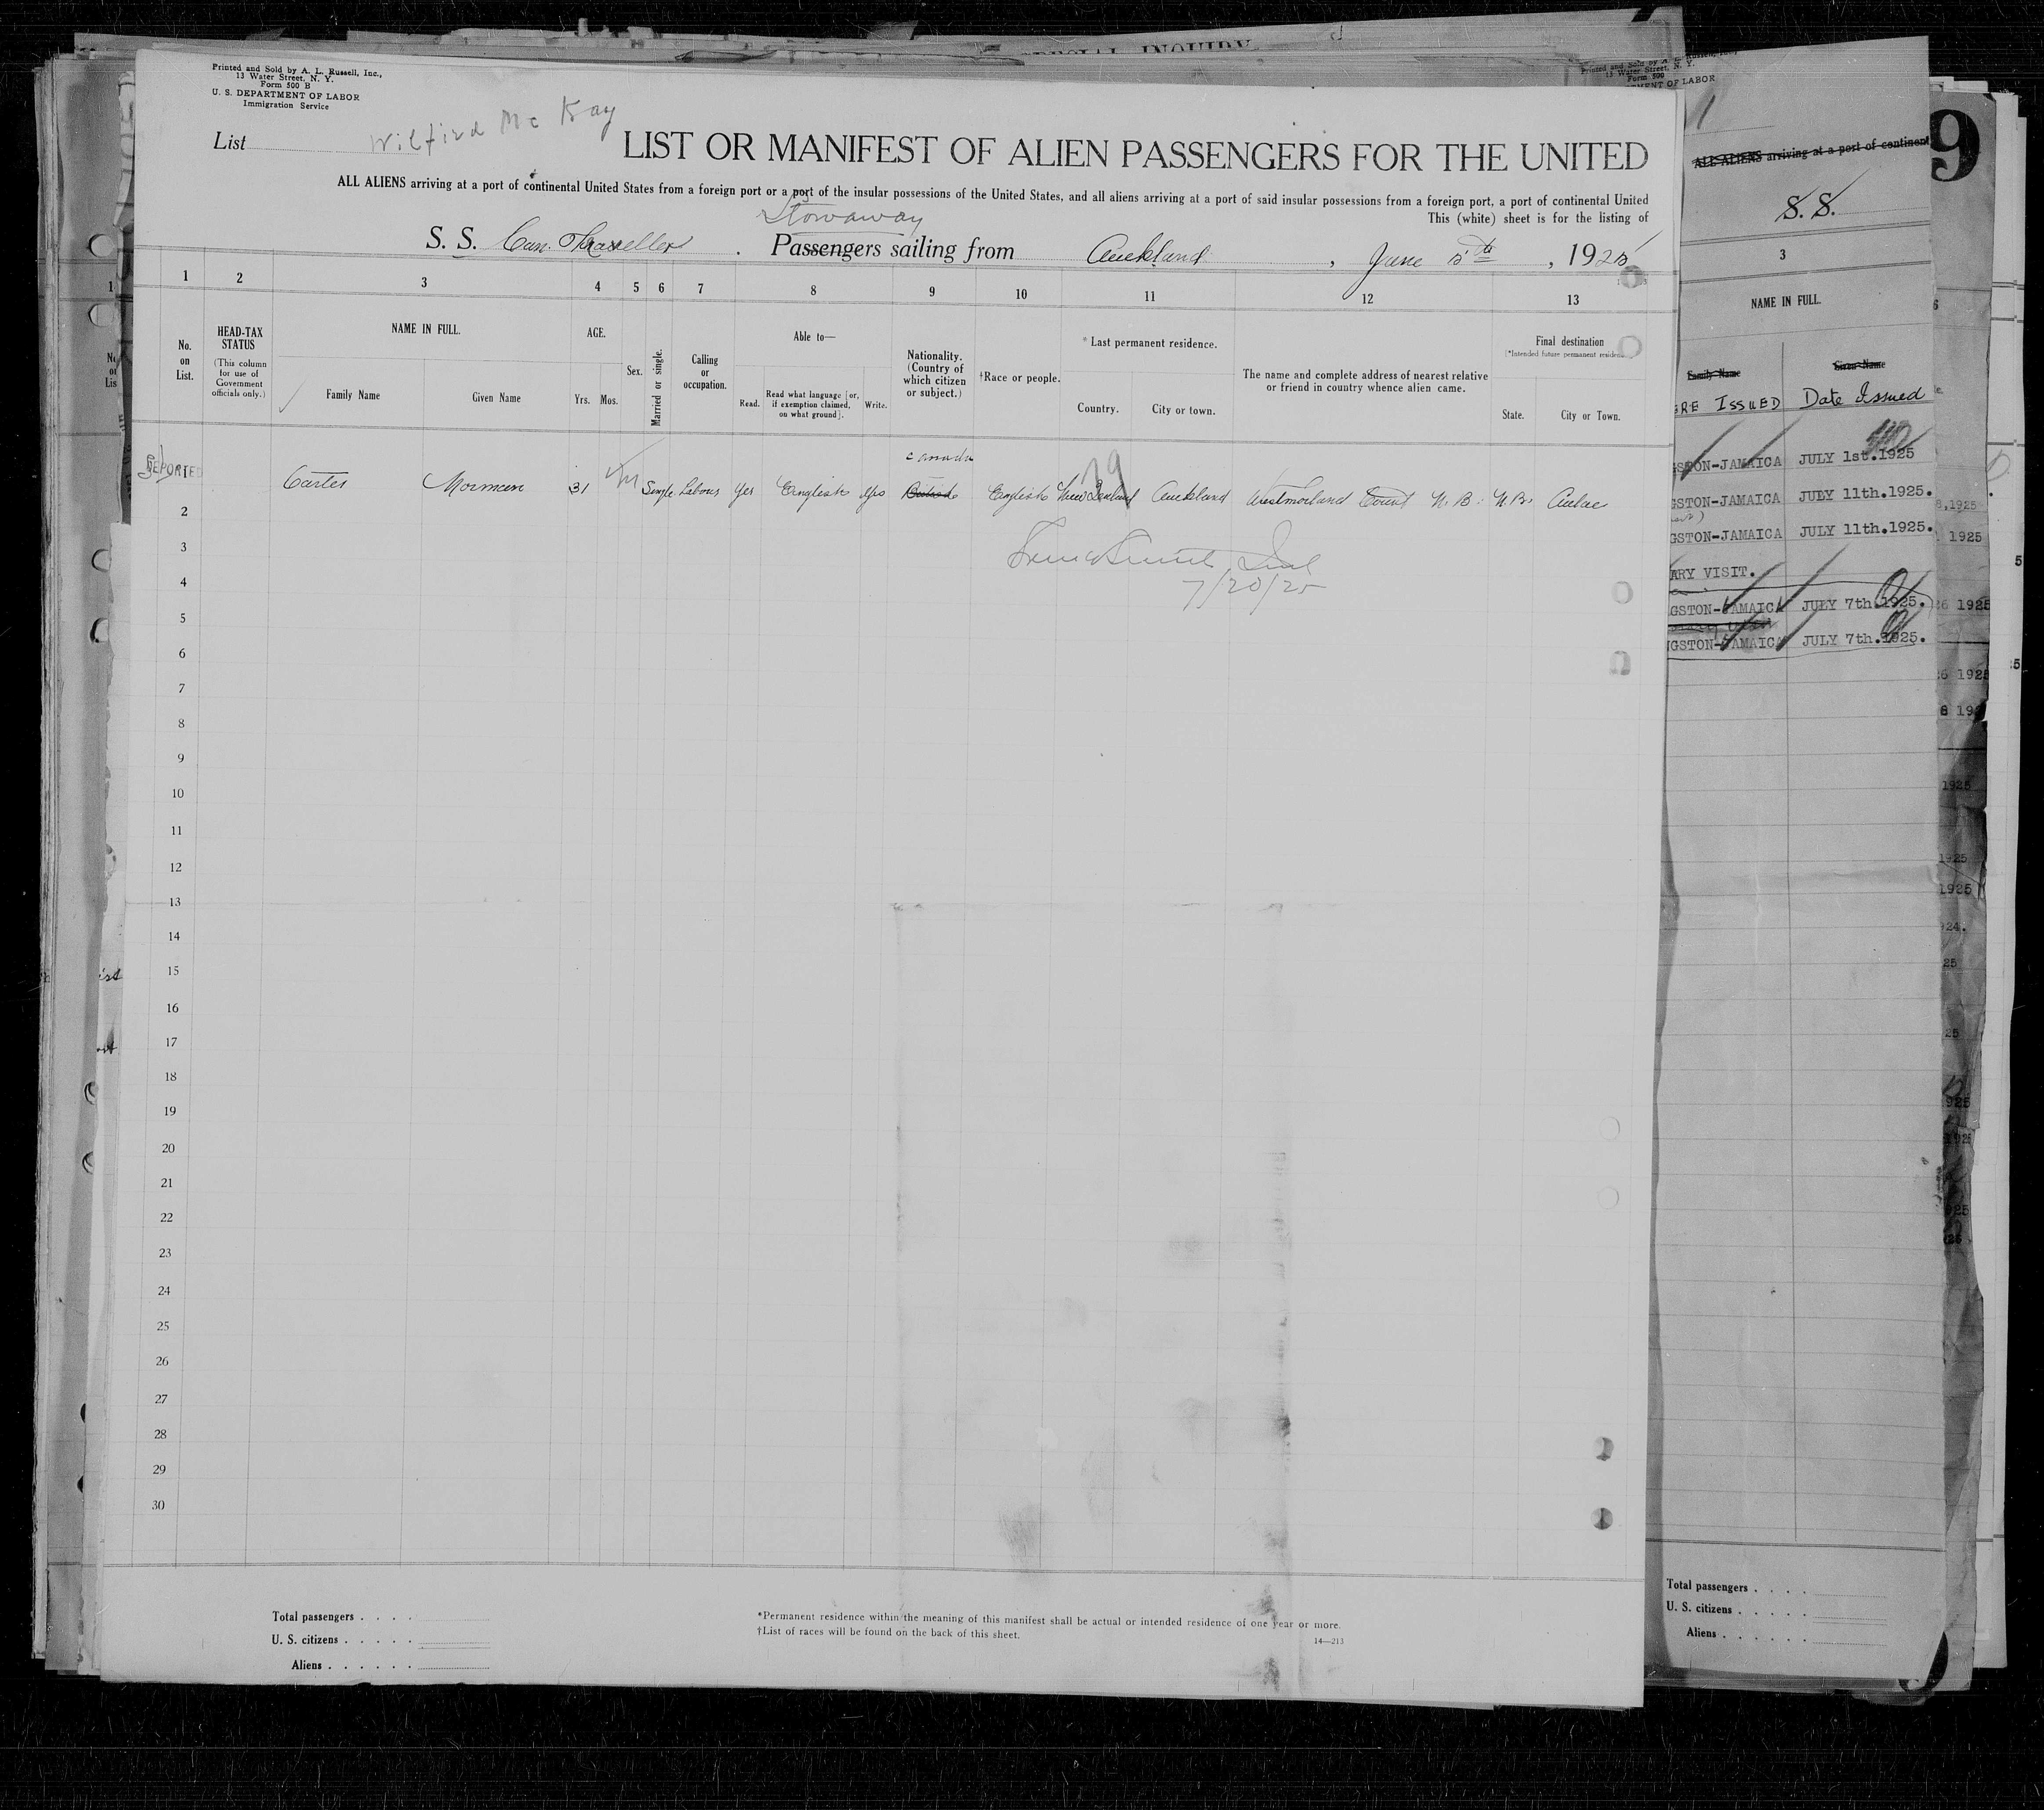 SPECIAL INQUIRY
Printed and Sold by A. L. Russell, Inc.,
13 Water Street, N. Y.
Form 500 B
U. S. DEPARTMENT OF LABOR
Immigration Service
List Wilfird Mc Kay
LIST OR MANIFEST OF ALIEN PASSENGERS FOR THE UNITED
ALL ALIENS arriving at a port of continental United States from a foreign port or a port of the insular possessions of the United States, and all aliens arriving at a port of said insular possessions from a foreign port, a port of continental United
This (white) sheet is for the listing of
Stowaway
S. S. Can. Traveller. Passengers sailing from Auckland, June 5th, 1925
1 2 3 4 5 6 7 8 9 10 11 12 13
No. on List.
HEAD-TAX STATUS
(This column for use of Government officials only.)
NAME IN FULL.
Family Name
Given Name
AGE.
Yrs. Mos.
Sex.
Married or single.
Calling or occupation.
Able to—
Read.
Read what language [or, if exemption claimed, on what ground].
Write.
Nationality. (Country of which citizen or subject.)
†Race or people.
*Last permanent residence.
Country.
City or town.
The name and complete address of nearest relative or friend in country whence alien came.
Final destination
(*Intended future permanent residence)
State.
City or Town.
Canada
Carter Norman 31 M Single Labour Yes English Yes British English New Zealand Auckland Westmorland Count N. B. N. B. Aulac
2
3
7/20/25
4
5
6
7
8
9
10
11
12
13
14
15
16
17
18
19
20
21
22
23
24
25
26
27
28
29
30
Total passengers . . . .
U. S. citizens . . . . .
Aliens . . . . . .
*Permanent residence within the meaning of this manifest shall be actual or intended residence of one year or more.
†List of races will be found on the back of this sheet.
14—213
Printed and Sold by A. L. Russell, Inc.
13 Water Street, N. Y.
Form 500
MENT OF LABOR
ALL ALIENS arriving at a port of continent
S. S.
3
NAME IN FULL.
Family Name Given Name
RE ISSUED Date Issued
GSTON-JAMAICA JULY 1st.1925
GSTON-JAMAICA JULY 11th.1925.
GSTON-JAMAICA JULY 11th.1925.
ARY VISIT.
GSTON-JAMAICA JULY 7th.1925.
NGSTON-JAMAICA JULY 7th.1925.
Total passengers . . . .
U. S. citizens . . . . .
Aliens . . . . . .
9